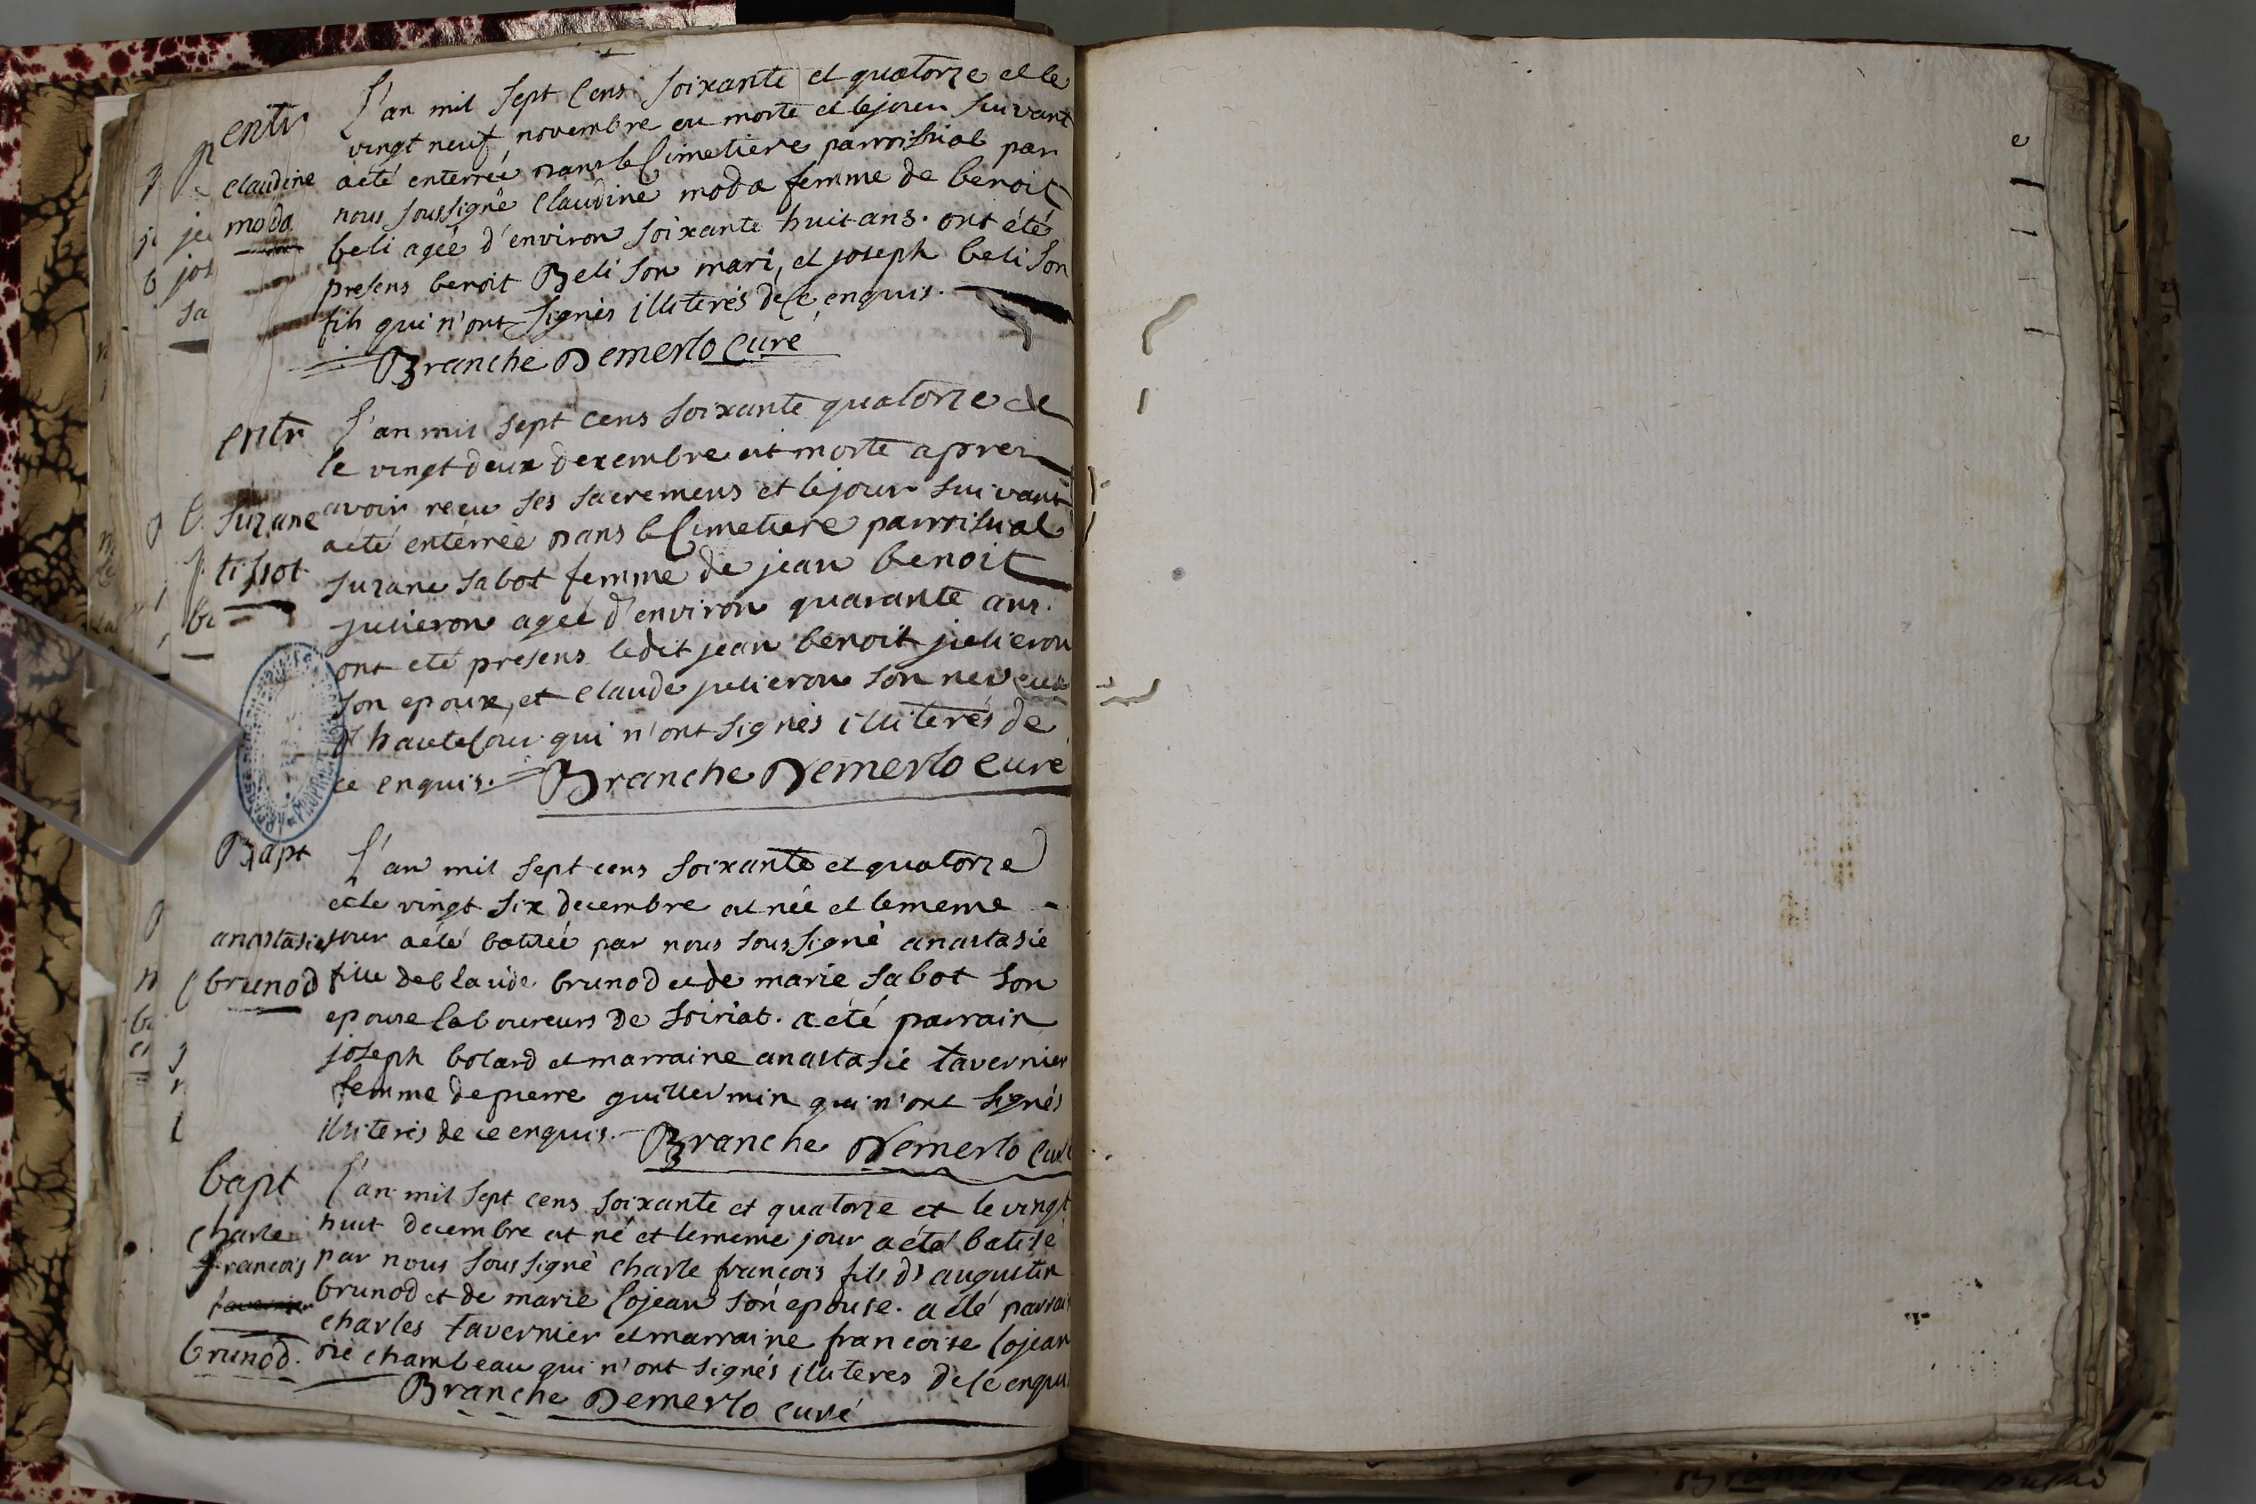 entr
claudine
moda
L'an mil sept cens soixante et quatorze et le
vingt neuf novembre eu morte et le jour suivant
a été enterrée dans le Cimetiere parroissial par
nous soussigné Claudine moda femme de benoit
beli ageé d'environ soixante huit ans. ont été
presens benoit Beli son mari, et joseph beli son
fils qui n'ont signés illiterés de ce enquis.
Branche Demerlo Curé
entr
suzane
tissot
L'an mil sept cens soixante quatorze et
le vingt deux dexembre est morte apres
avoir reçu ses sacremens et le jour suivant
a été entérreé dans le Cimetiere parroissial
suzane sabot femme de jean benoit
julieron ageé d'environ quarante ans.
ont eté presens ledit jean benoit julieron
son epoux, et claude julieron son neveu
d'hautecour qui n'ont signés illiterés de
ce enquis. Branche Demerlo curé
Bapt
anastasie
brunod
L'an mil sept cens soixante et quatorze
et le vingt six decembre est née et le meme
jour a été batisée par nous soussigné anastasie
fille de Claude brunod et de marie sabot son
epouse laboureurs de soiriat. a été parrain
joseph bolard et marraine anastasie tavernier
femme de pierre guillermin qui n'ont signés
illiterés de ce enquis. Branche Demerlo Curé
bapt
charle
francois
tavernier
brunod.
L'an mil sept cens soixante et quatorze et le vingt
huit decembre est né et le meme jour a été batisé
par nous soussigné charle françois fils d' augustin
brunod et de marie lojean son epouse. a été parrain
charles tavernier et marraine francoise lojean
de chambeau qui n'ont signés illiteres de ce enqui
Branche Demerlo curé